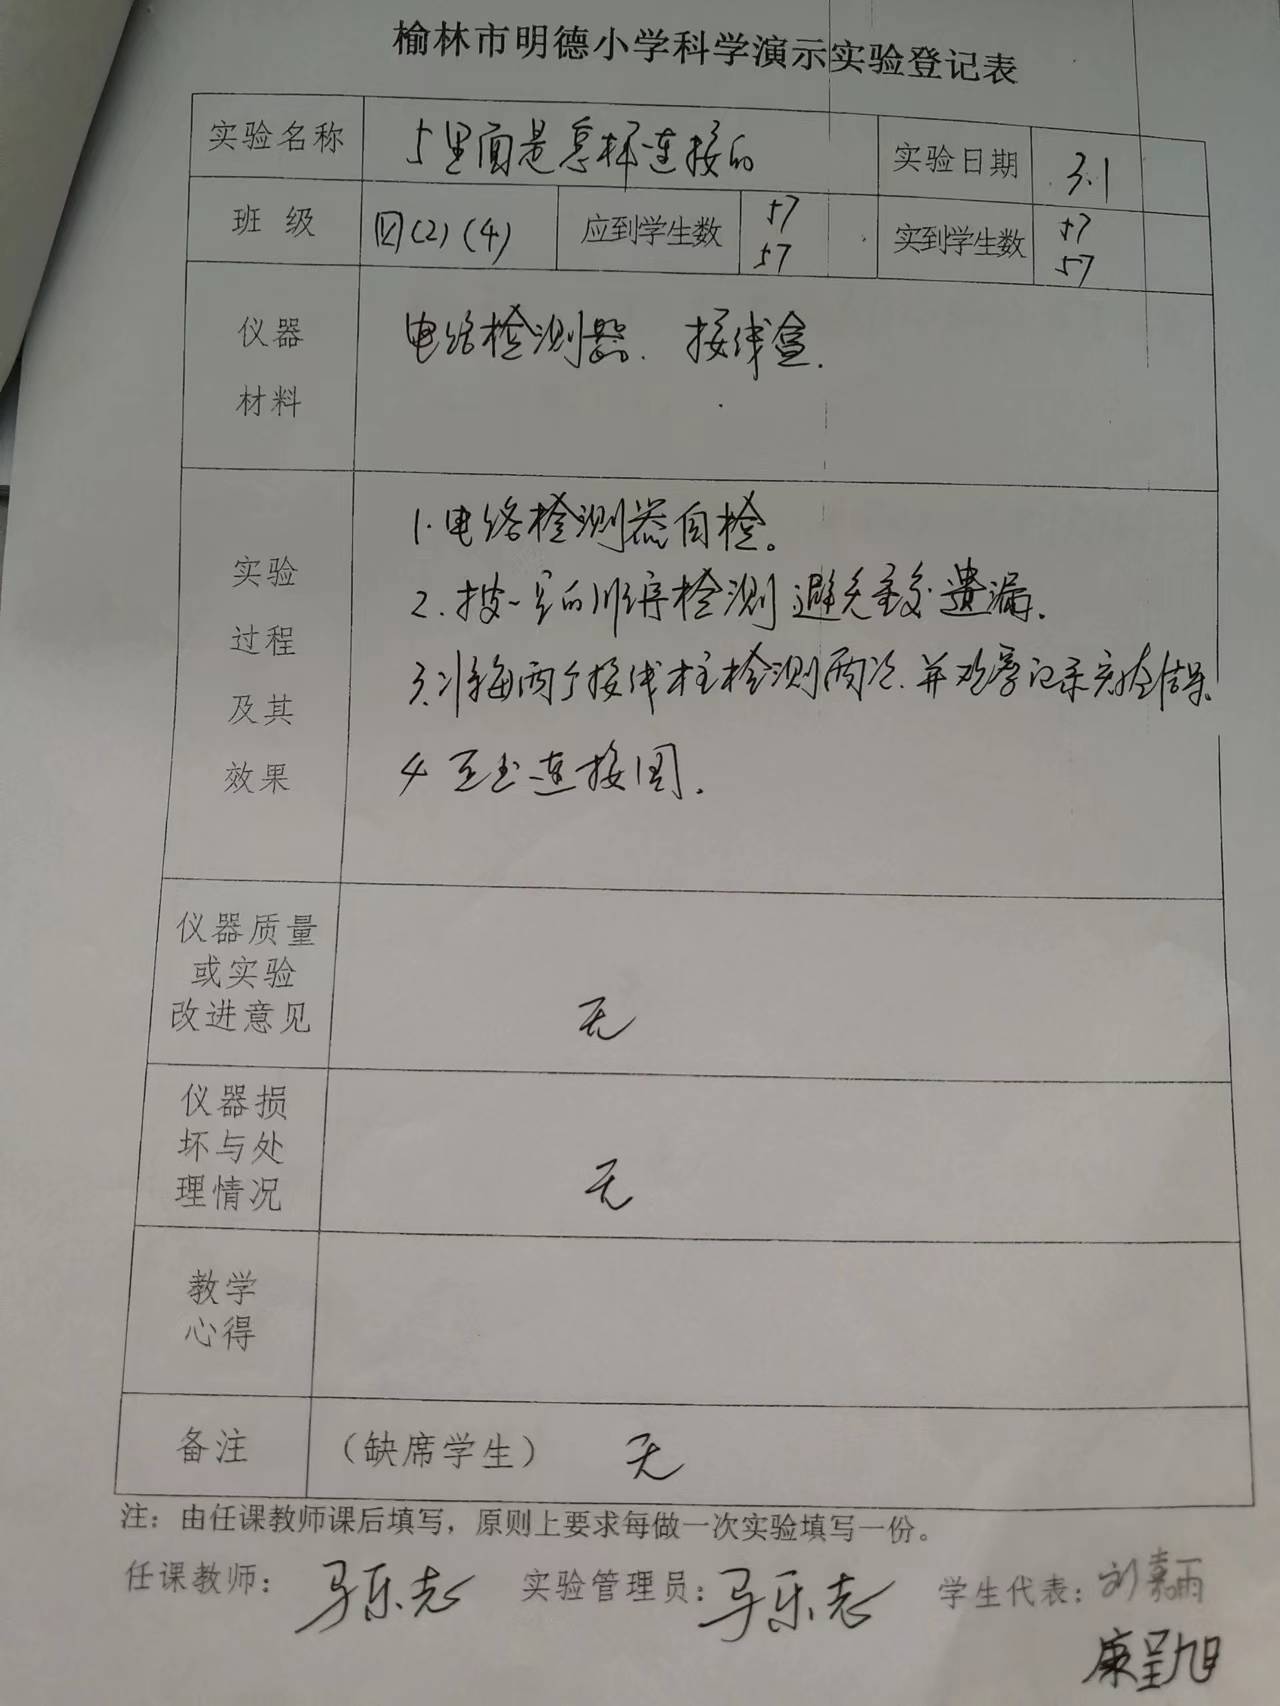 榆林市明德小学科学演示实验登记表
实验名称 5里面是怎样连接的 实验日期 3.1
班 级 四(2)(4) 应到学生数 57 57 实到学生数 57 57
仪器
材料
电路检测器. 接线盒.
实验
过程
及其
效果
1.电路检测器自检。
2.按一定的顺序检测 避免重复遗漏.
3.将每两个接线柱检测两次.并观察记录实验结果.
4 画出连接图.
仪器质量
或实验
改进意见
无
仪器损
坏与处
理情况
无
教学
心得
备注 (缺席学生) 无
注：由任课教师课后填写，原则上要求每做一次实验填写一份。
任课教师: 马乐志 实验管理员: 马乐志 学生代表: 刘嘉雨
康呈旭